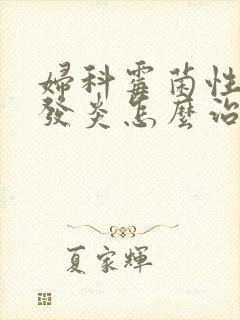 婦科霉菌性
發炎怎麼治
夏家輝